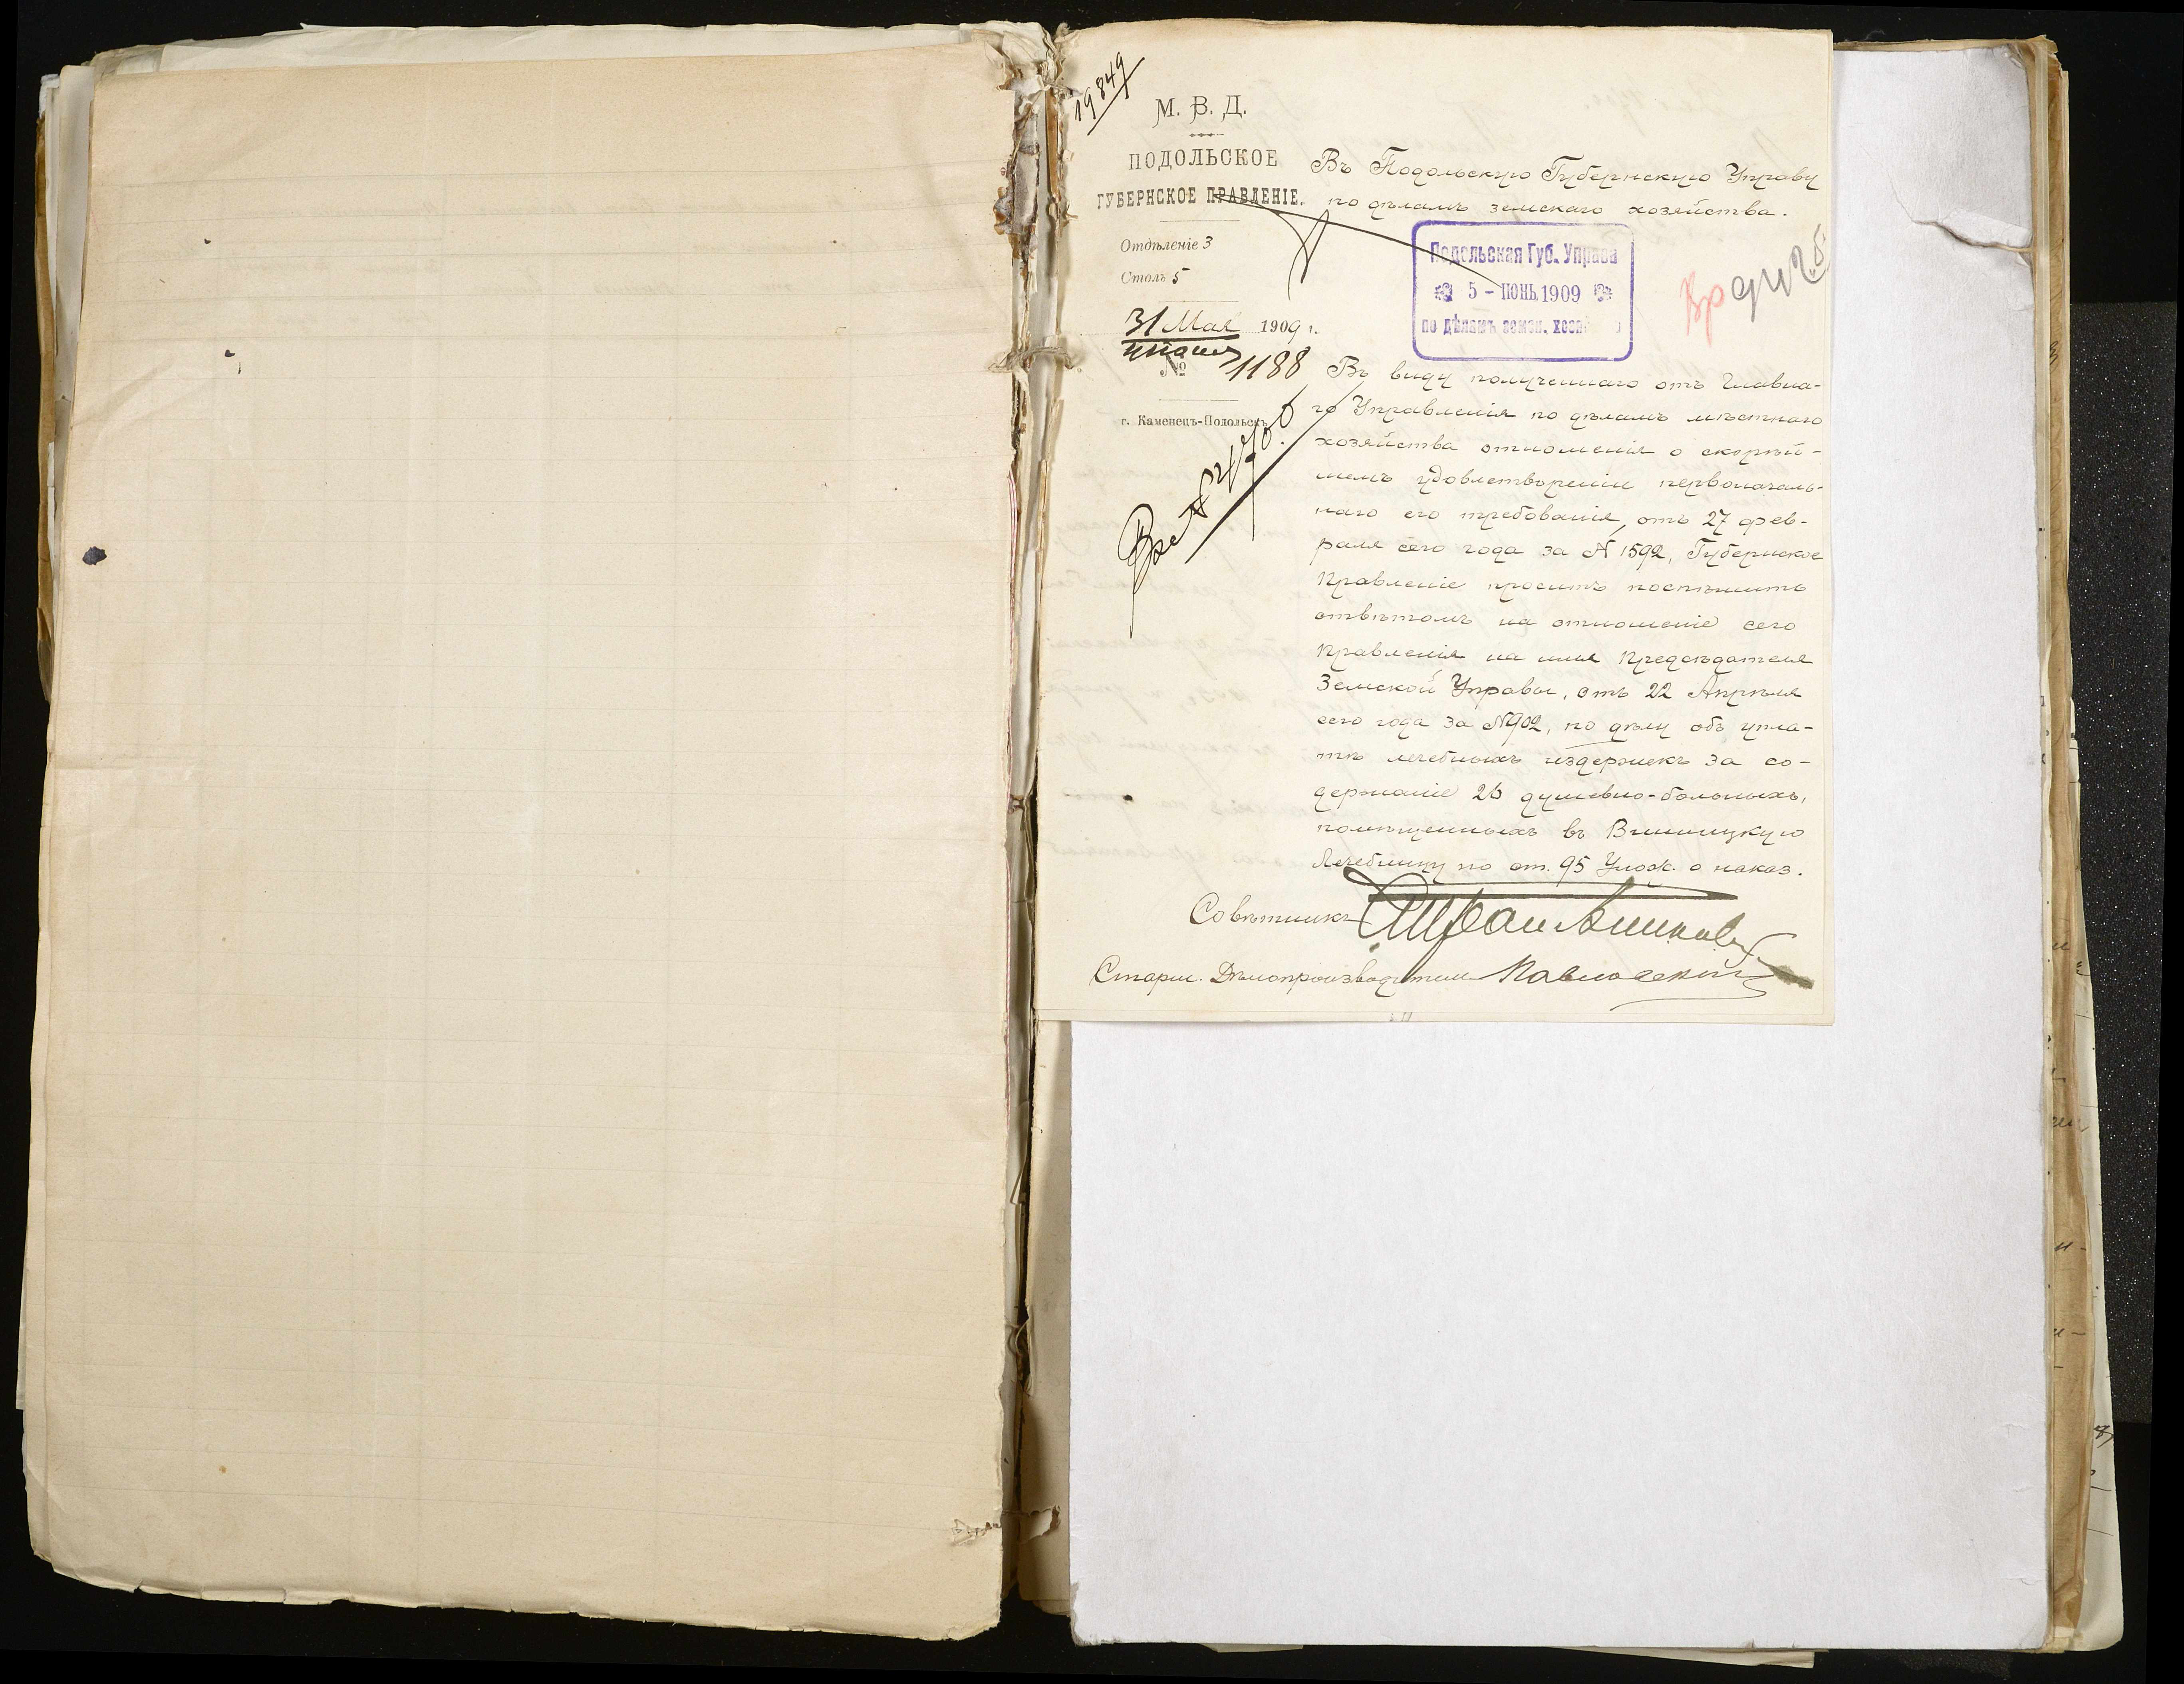 19849
М. В. Д.
ПОДОЛЬСКОЕ
ГУБЕРНСКОЕ ПРАВЛЕНІЕ.
Отдѣленіе 3
Столъ 5
31 Мая 1909 г.
№ 1188
г. Каменецъ-Подольскъ
Въ Подольскую Губернскую Управу
по дѣламъ земскаго хозяйства.
Подольская Губ. Управа
5 - ІЮНЬ 1909
по дѣламъ земск. хозя
Въ виду полученнаго отъ Главна-
го Управленія по дѣламъ мѣстнаго
хозяйства отношенія о скорѣй-
шемъ удовлетвореніи первоначаль-
наго его требованія, отъ 27 фев-
раля сего года за № 1592, Губернское
Правленіе проситъ поспѣшить
отвѣтомъ на отношеніе сего
Правленія на имя Предсѣдателя
Земской Управы, отъ 22 Апрѣля
сего года за №902, по дѣлу объ упла-
тѣ лечебныхъ издержекъ за со-
держаніе 26 душевно-больныхъ,
помѣщенныхъ въ Винницкую
Лечебницу по ст. 95 Улож. о наказ.
Совѣтникъ
Старш. Дѣлопроизводитель Павловскій